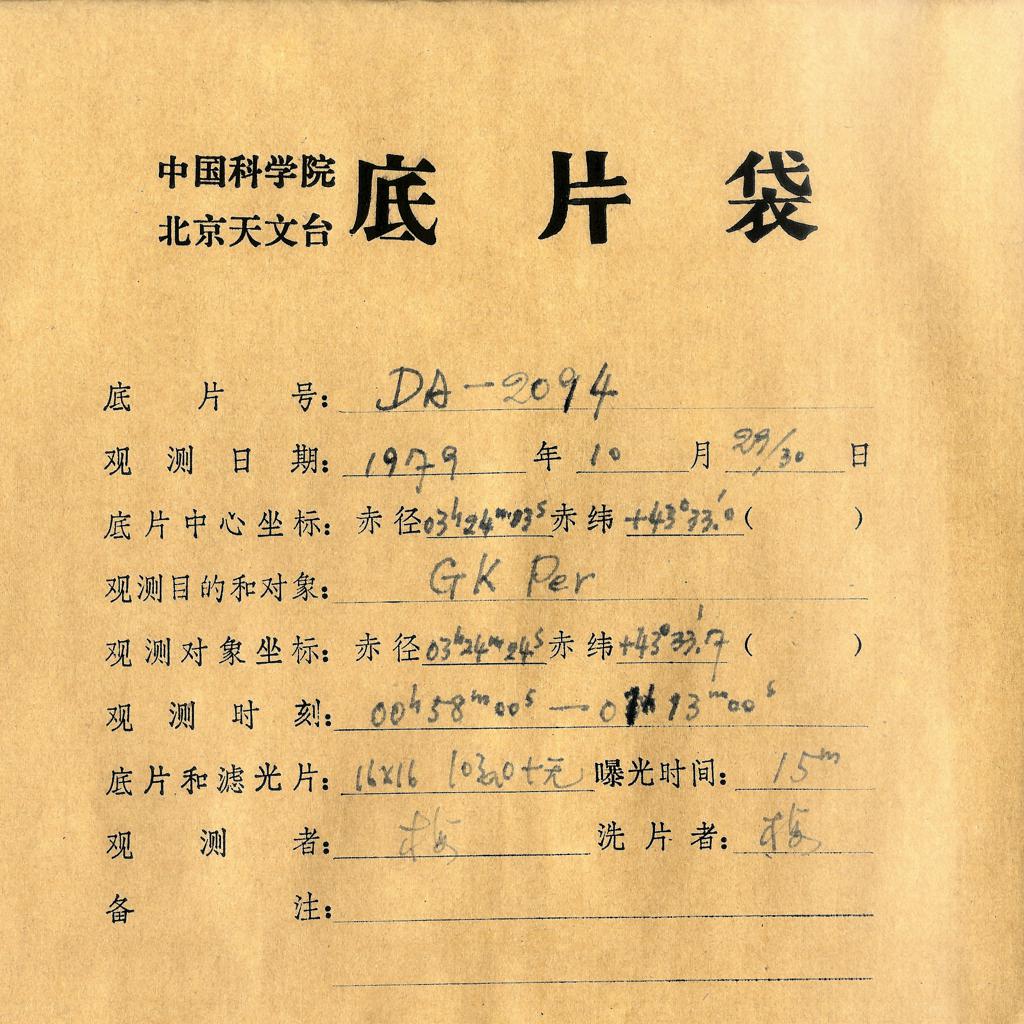 中国科学院
北京天文台
底片袋
底片号: DA-2094
观测日期: 1979 年 10 月 29/30 日
底片中心坐标: 赤径 03h24m13s 赤纬 +43°33'.0 ( )
观测目的和对象: GK Per
观测对象坐标: 赤径 03h24m24s 赤纬 +43°33'.7 ( )
观测时刻: 00h58m00s — 01h13m00s
底片和滤光片: 16x16 103aO+无 曝光时间: 15m
观测者: 梅 洗片者: 梅
备注: